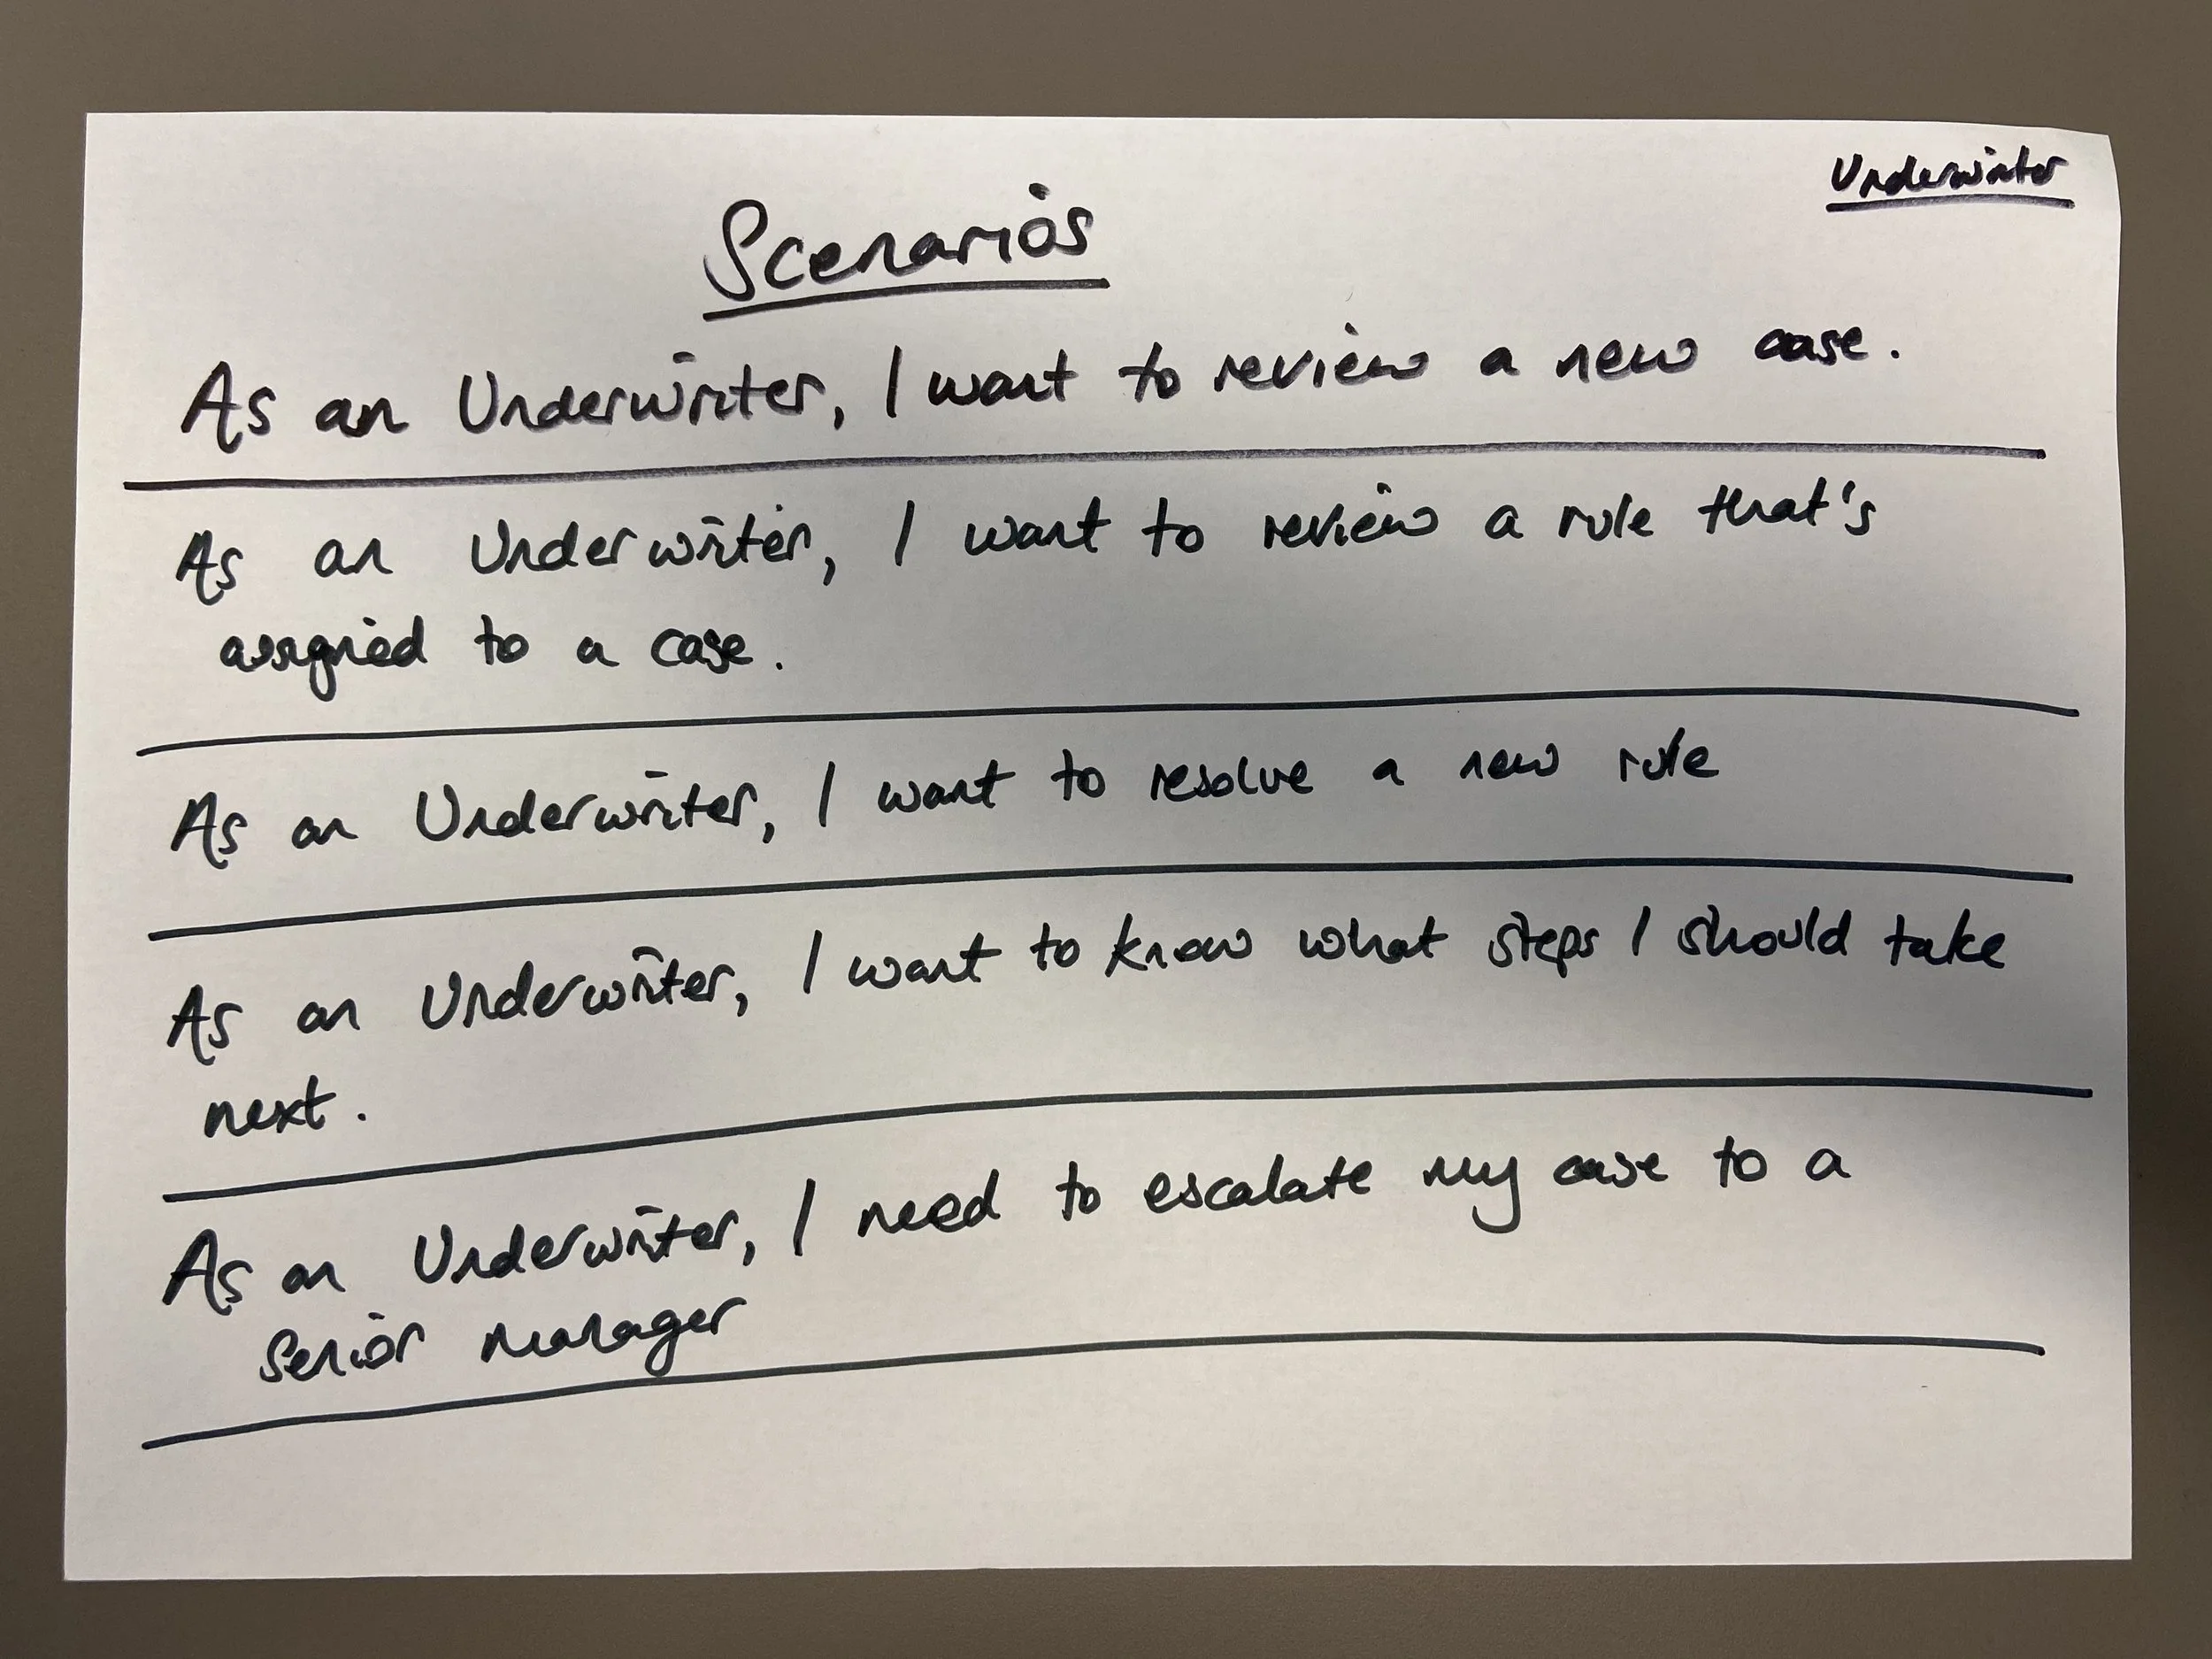 Underwriter
Scenarios
As an Underwriter, I want to review a new case.
As an Underwriter, I want to review a rule that's
assigned to a case.
As an Underwriter, I want to resolve a new rule
As an Underwriter, I want to know what steps I should take
next.
As an Underwriter, I need to escalate my case to a
Senior manager